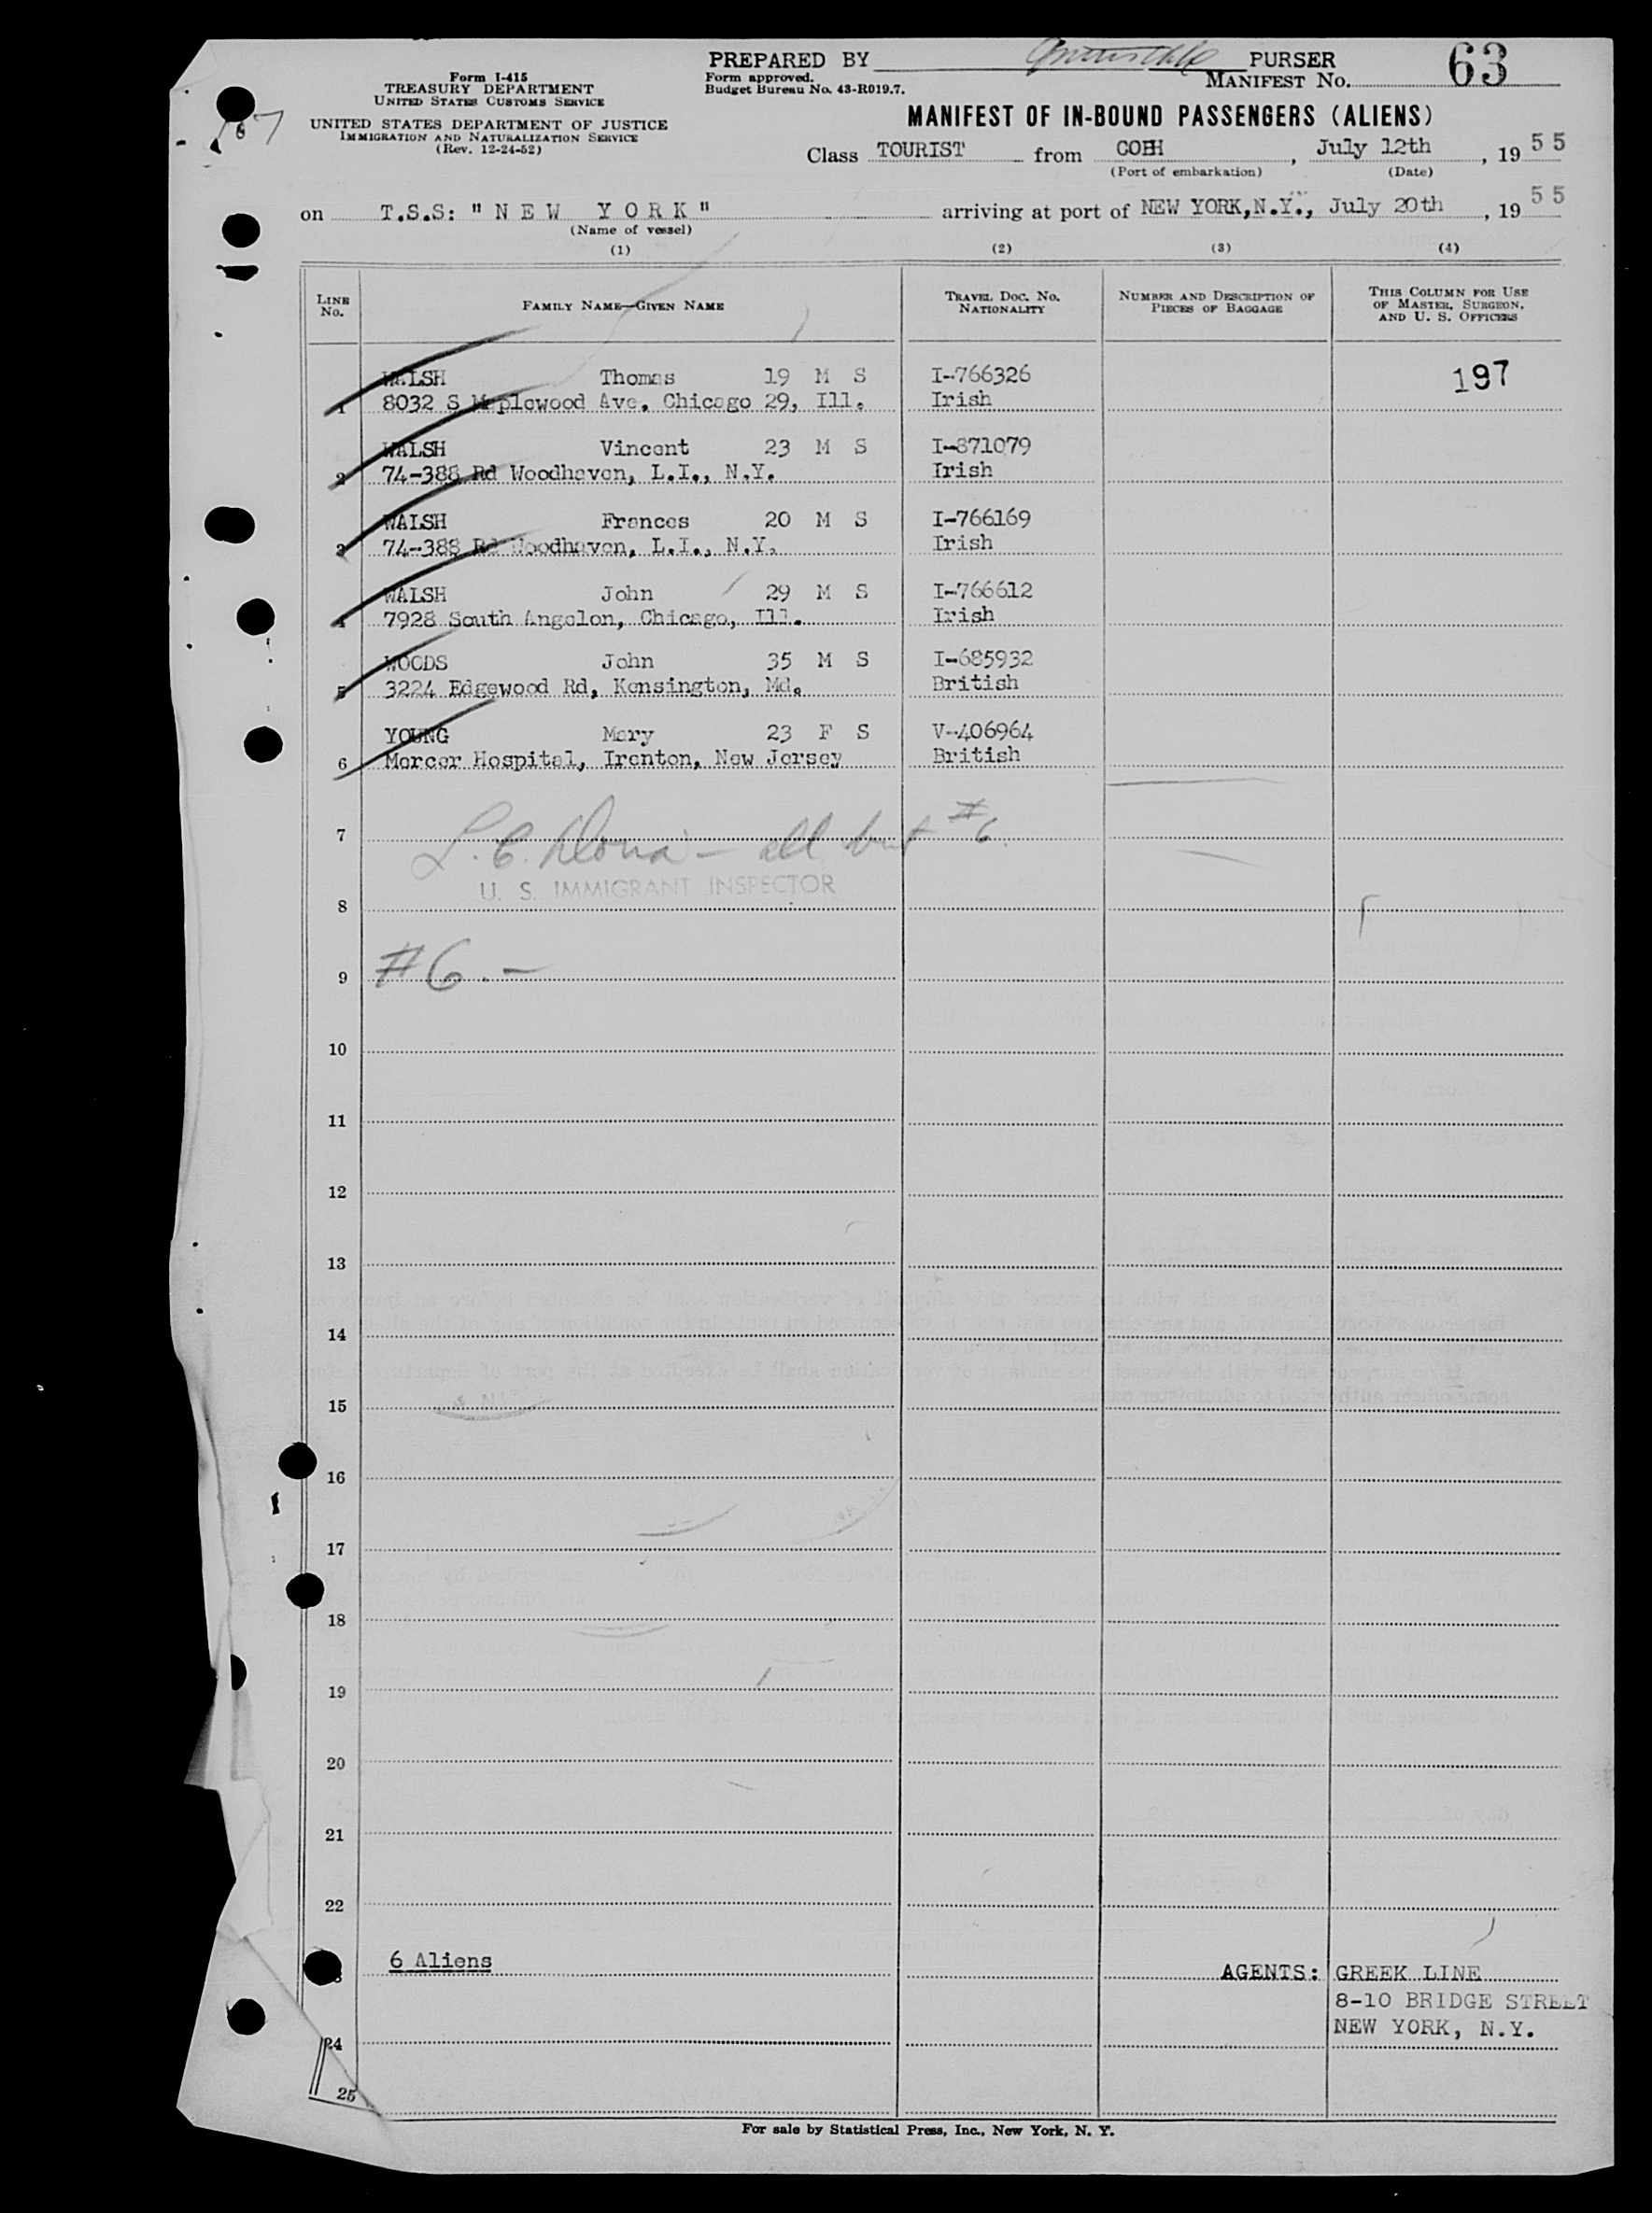 PREPARED BY PURSER
63
Form I-415
TREASURY DEPARTMENT
UNITED STATES CUSTOMS SERVICE
Form approved.
Budget Bureau No. 43-R019.7.
MANIFEST No.
UNITED STATES DEPARTMENT OF JUSTICE
IMMIGRATION AND NATURALIZATION SERVICE
(Rev. 12-24-52)
MANIFEST OF IN-BOUND PASSENGERS (ALIENS)
Class TOURIST from COBH, July 12th, 1955
(Port of embarkation) (Date)
on T.S.S: "NEW YORK" arriving at port of NEW YORK, N.Y., July 20th, 1955
(Name of vessel)
(1) (2) (3) (4)
LINE No. FAMILY NAME—GIVEN NAME TRAVEL DOC. NO. NATIONALITY NUMBER AND DESCRIPTION OF PIECES OF BAGGAGE THIS COLUMN FOR USE OF MASTER, SURGEON, AND U. S. OFFICERS
WALSH Thomas 19 M S I-766326 197
1 8032 S Maplewood Ave. Chicago 29, Ill. Irish
WALSH Vincent 23 M S I-871079
2 74-388 Rd Woodhaven, L.I., N.Y. Irish
WALSH Frances 20 M S I-766169
3 74-388 Rd Woodhaven, L.I., N.Y. Irish
WALSH John 29 M S I-766612
4 7928 South Angelon, Chicago, Ill. Irish
WOODS John 35 M S I-685932
5 3224 Edgewood Rd, Kensington, Md. British
YOUNG Mary 23 F S V-406964
6 Mercer Hospital, Irenton, New Jersey British
7 L. C. - all but #6
U. S. IMMIGRANT INSPECTOR
8
9 #6. -
10
11
12
13
14
15
16
17
18
19
20
21
22
6 Aliens AGENTS: GREEK LINE
8-10 BRIDGE STREET
NEW YORK, N.Y.
24
25
For sale by Statistical Press, Inc., New York, N. Y.